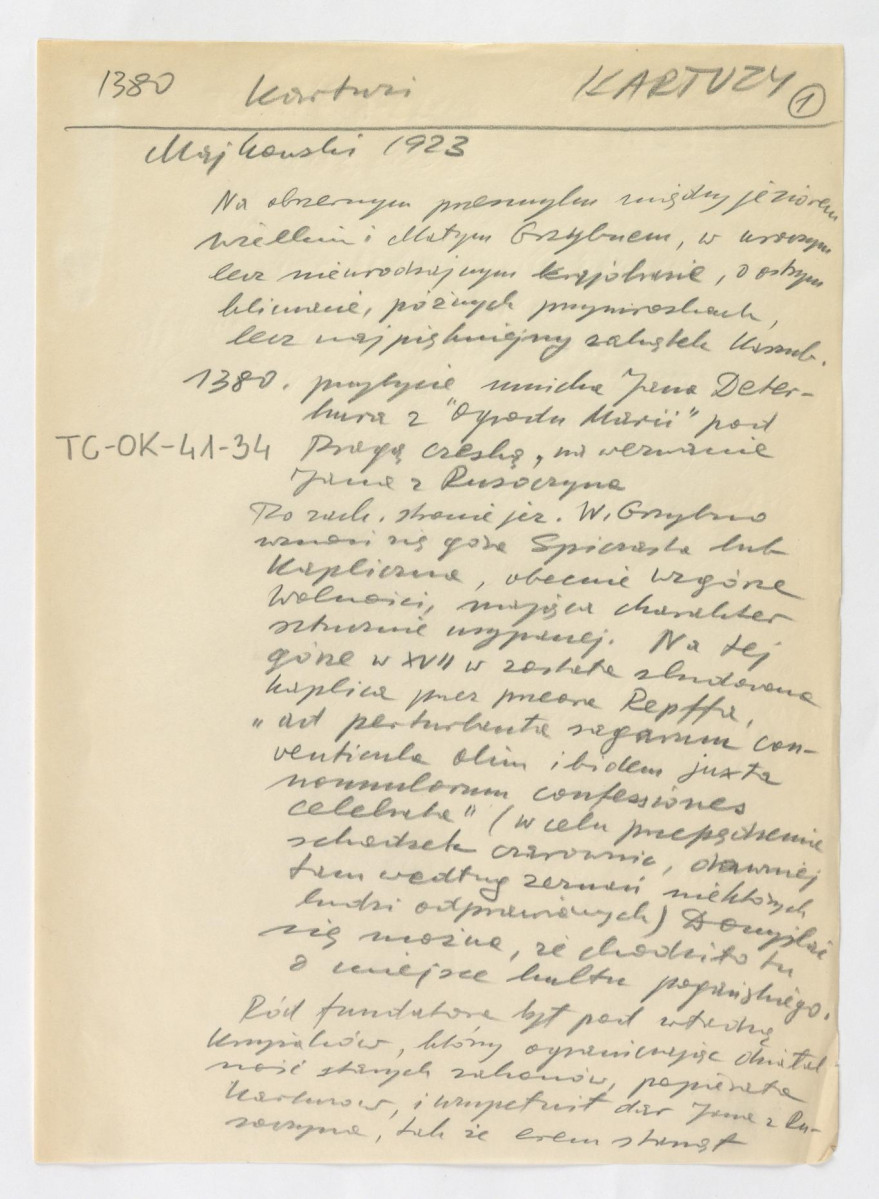 1380 Kartuzi KARTUZY 1
Majkowski 1923
Na obszernym przesmyku między jeziorem
Wielkim i Małym Grzybnem, w uroczym
lecz nieurodzajnym krajobrazie, o ostrym
klimacie, późnych przymrozkach,
lecz najpiękniejszy zakątek Kaszub.
1380. przybycie mnicha Jana Deter-
hura z "Ogrodu Marii" pod
TC-OK-41-34 Pragą czeską, na wezwanie
Jana z Rusoczyna
Po zach. stronie jez. W. Grzybno
wznosi się góra Spiczasta lub
Kapliczna, obecnie wzgórze
Wolności, mająca charakter
sztucznie usypanej. Na tej
górze w XVII w została zbudowana
kaplica przez przeora Repffa,
"ad perturbanta sagarum con-
venticula olim ibidem juxta
nonnullorum confessiones
celebrata" (w celu przepędzenia
schadzek czarownic, dawniej
tam według zeznań niektórych
ludzi odprawianych) Domyślać
się można, że chodziło tu
o miejsce kultu pogańskiego.
Ród fundatora był pod władzą
Krzyżaków, który ograniczając działal-
ność starych zakonów, popierała
Kartuzów, i uzupełnił dar Jana z Ru-
soczyna, tak że erem stanął